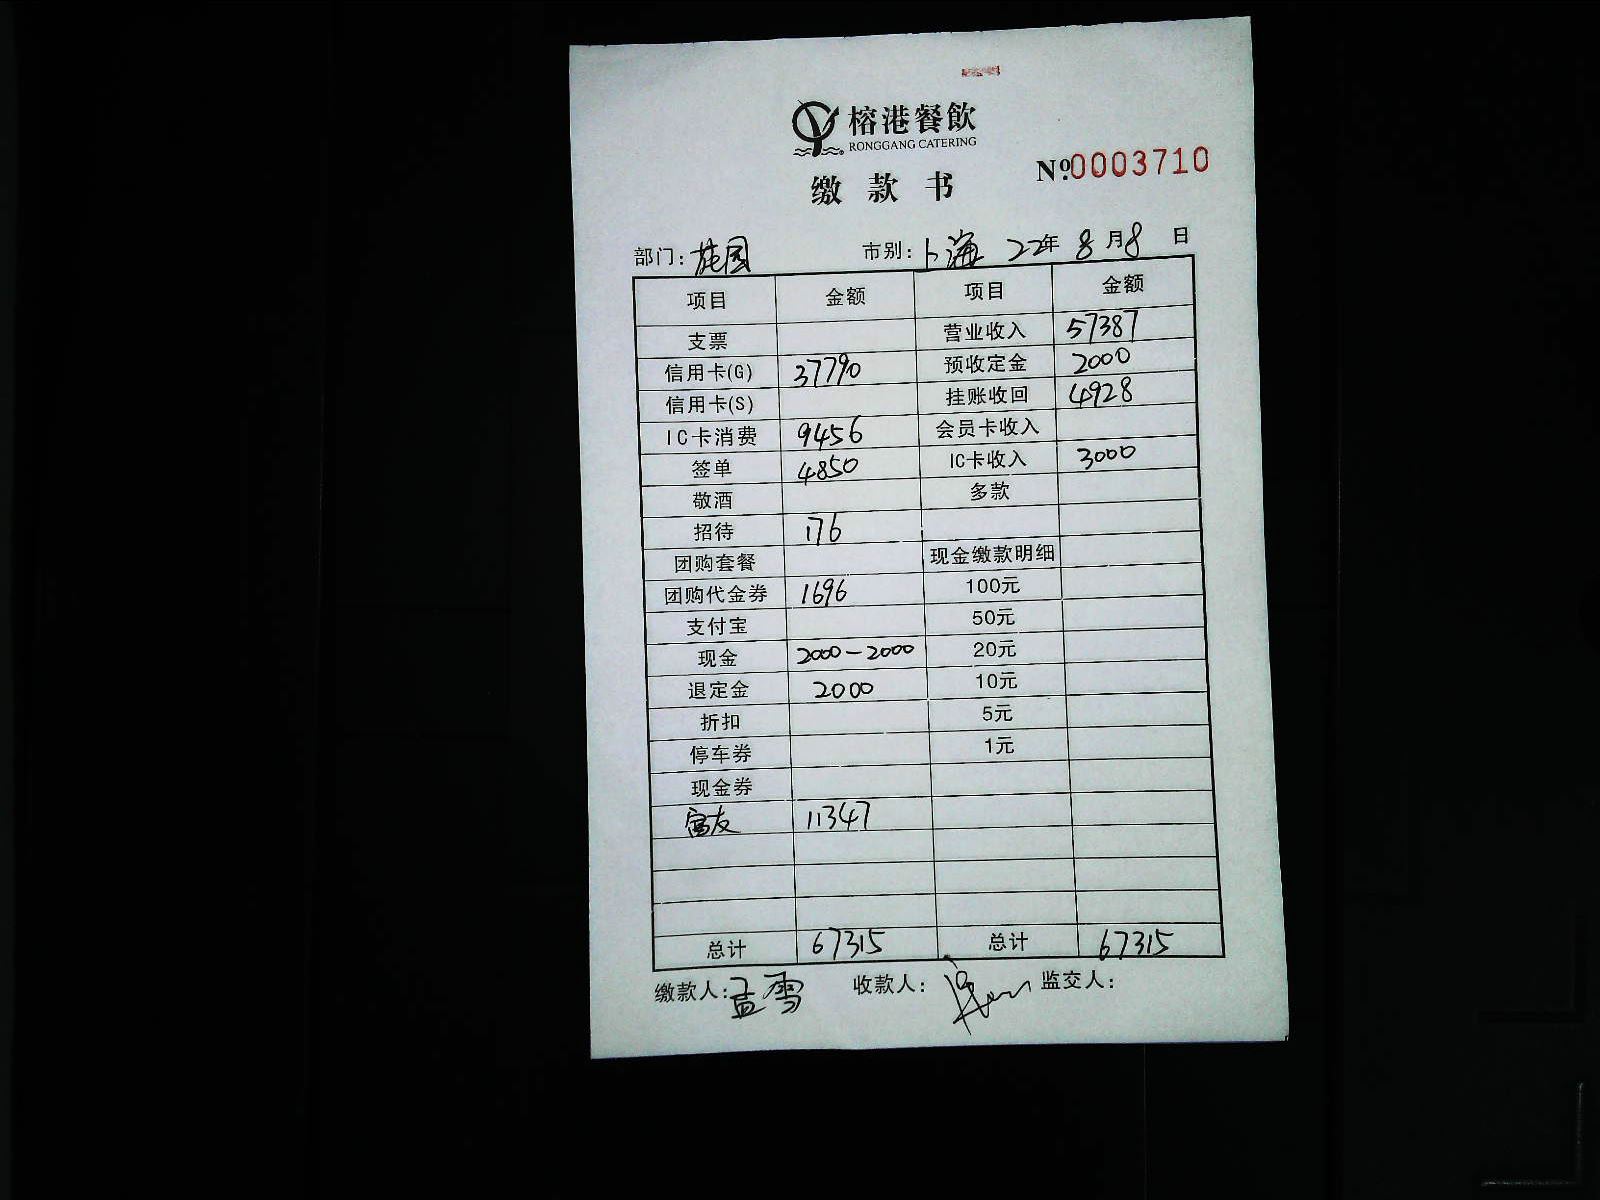 榕港餐飲
RONGGANG CATERING
№0003710
缴款书
部门: 桂园 市别: 上海 22年 8月8日
项目 金额 项目 金额
支票 营业收入 57387
信用卡(G) 37790 预收定金 2000
信用卡(S) 挂账收回 4928
IC卡消费 9456 会员卡收入
签单 4850 IC卡收入 3000
敬酒 多款
招待 176
团购套餐 现金缴款明细
团购代金券 1696 100元
支付宝 50元
现金 2000-2000 20元
退定金 2000 10元
折扣 5元
停车券 1元
现金券
富友 11347
总计 67315 总计 67315
缴款人: 孟雪 收款人: 监交人: